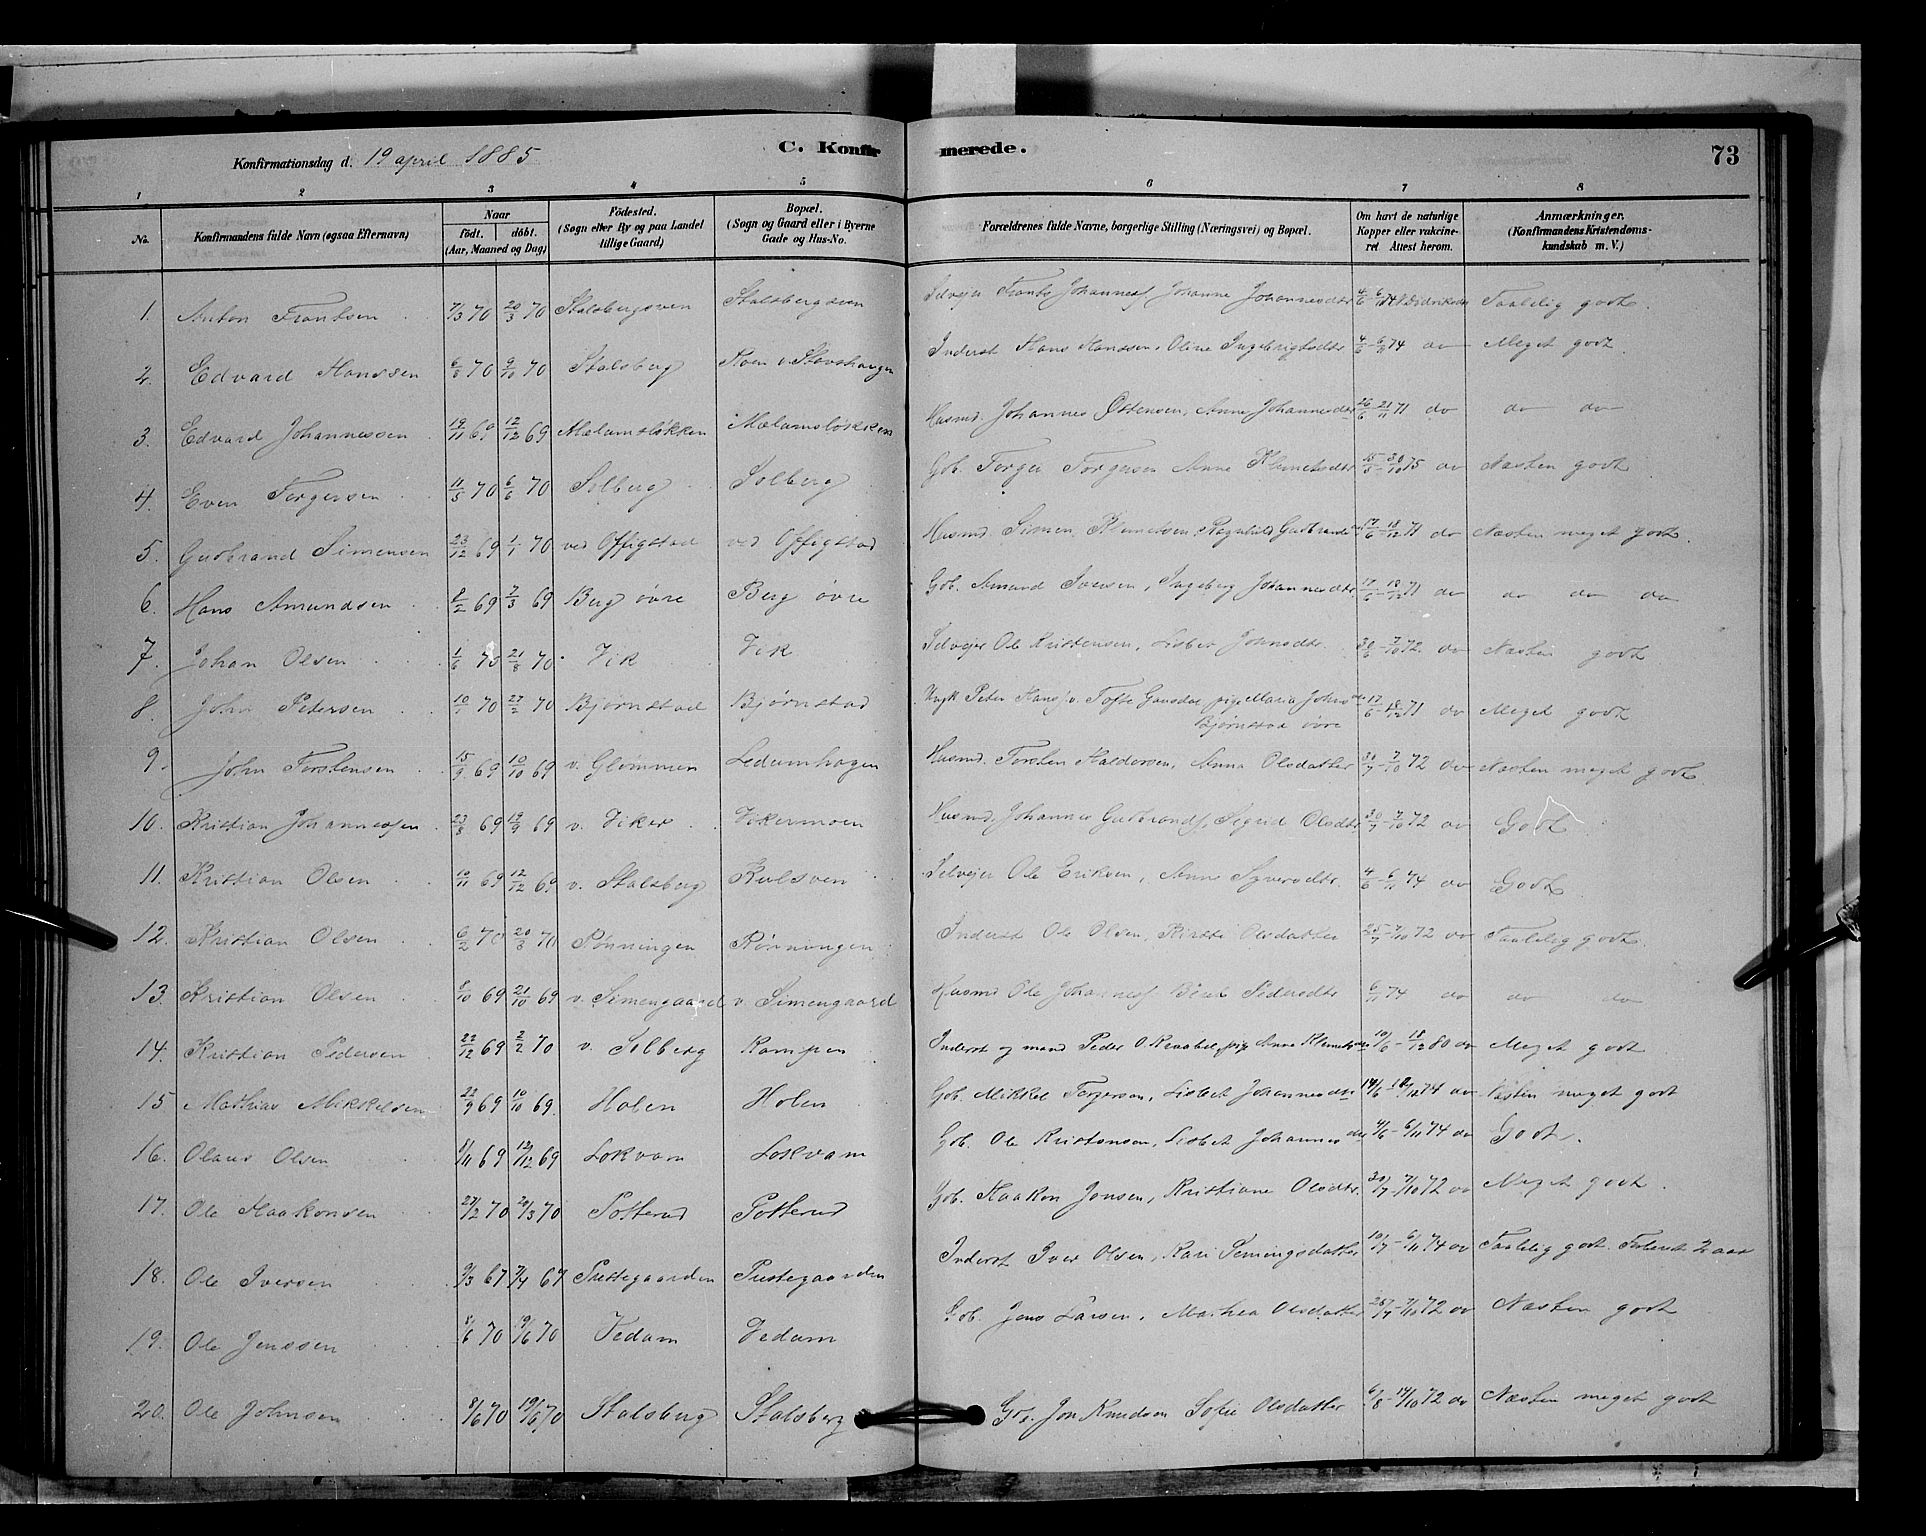 Konfirmationsdag d. 19 april 1885
C. Konfirmerede.
73
1 2 3 4 5 6 7 8
No. Konfirmandens fulde Navn (ogsaa Efternavn) Naar födt. döbt. (Aar, Maaned og Dag) Födested. (Sogn eller By og paa Landet tillige Gaard) Bopæl. (Sogn og Gaard eller i Byerne Gade og Hus-No. Forældrenes fulde Navne, borgerlige Stilling (Næringsvei) og Bopæl. Om havt de naturlige Kopper eller vakcineret. Attest herom. Anmærkninger. (Konfirmandens Kristendomskundskab m. V.)
1. Anton Frantsen 7/3 70 20/3 70 Stalsbergsven Stalsbergsven Selvejer Frants Johannesf Johanne Johannesdtr 4/6 - 6/11 74 Taalelig godt.
2. Edvard Hanssen 6/8 70 9/10 70 Stalsberg Hans Hanssen, Oline Ingebrigtsdtr 4/6 - 6/11 74 do Meget godt.
3. Edvard Johannessen 19/11 69 12/12 69 Mælumsløkken Mælumsløkken Husmd. Johannes Østensen, Anne Johannesdtr 26/6 - 21/11 71 do do do
4. Even Torgersen 11/5 70 6/6 70 Solberg Solberg Gbr. Torger Torgersen Anne Klemetsdtr 15/5 - 30/10 75 do Næsten godt
5. Gudbrand Simensen 23/12 69 1/1 70 ved Offigstad ved Offigstad Husmd Simen Klemetsen, Ragnhild Gudbrandsdtr 17/6 - 18/12 71 do Næsten meget godt.
6. Hans Amundsen 8/2 69 7/3 69 Berg øvre Berg øvre Gbr. Amund Iversen, Ingeborg Johannesdtr 17/6 - 18/12 71 do do do do
7. Johan Olsen 1/6 70 21/8 70 Vik Vik Selvejer Ole Kristensen, Lisbet Johnsdtr. 30/6 - 7/10 72 do Næsten godt
8. John Petersen 10/1 70 27/2 70 Bjørnstad Bjørnstad Ungk Peter Hansf v. Tofte Gausdal pige Maria Johnsdtr 17/6 - 18/12 71 do Meget godt
Bjørnstad øvre
9. John Torstensen 15/9 69 10/10 69 v. Glømmen Ledumhagen Husmd. Torsten Haldorsen, Anna Olsdatter 30/7 - 7/10 72 do Næsten meget godt
10. Kristian Johannessen 23/8 69 19/9 69 v. Viker Vikermoen Husmd. Johannes Gudbrandf, Sigrid Olsdtr 30/7 - 7/10 72 do Godt
11. Kristian Olsen 10/11 69 12/12 69 v. Stalsberg Selvejer Ole Eriksen, Anne Syversdtr. 4/6 - 6/11 74 do Godt
12. Kristian Olsen 6/2 70 20/3 70 Rønningen Rønningen Inderst Ole Olsen, Olsdatter 25/7 - 7/10 72 do Taalelig godt.
13. Kristian Olsen 8/10 69 21/10 69 v. Simengaard v. Simengaard Husmd Ole Johannesf Berit Pedersdtr 6/11 74 do do do
14. Kristian Pedersen 22/12 69 2/2 70 v. Solberg Kampen Inderst og mand Peder O. pige Anne Klemetsdtr 10/6 - 18/12 80 do Meget godt
15 Mathias Mikkelsen 22/9 69 10/10 69. Holen Holen Gbr. Mikkel Torgersen, Lisbet Johannesdtr 17/6 - 18/12 74 do Næsten meget godt
16. Olaus Olsen 1/11 69 12/12 69 Lokvam Lokvam Gbr. Ole Kristensen, Lisbet Johannesdtr 4/6 - 6/11 74 do Godt.
17. Ole Haakonsen 27/2 70 20/3 70 Potterud Potterud Gbr. Haakon Jonsen, Kristiane Olsdtr. 30/7 - 7/10 72 do Meget godt.
18. Ole Iversen 9/3 67 7/4 67 Prestegaarden Prestegaarden Inderst Iver Olsen, Kari Semingsdatter 10/7 - 6/11 74 do Taalelig godt. 2 aar
19. Ole Jenssen 8/6 70 19/6 70 Vedam Vedam Gbr. Jens Larsen, Marthea Olsdatter 25/7 - 7/10 72 do Næsten godt
20. Ole Johnsen 8/6 70 19/6 70 Stalsberg Stalsberg Gbr. Jon Knudsen Sofie Olsdatter 6/8 - 14/10 72 do Næsten meget godt